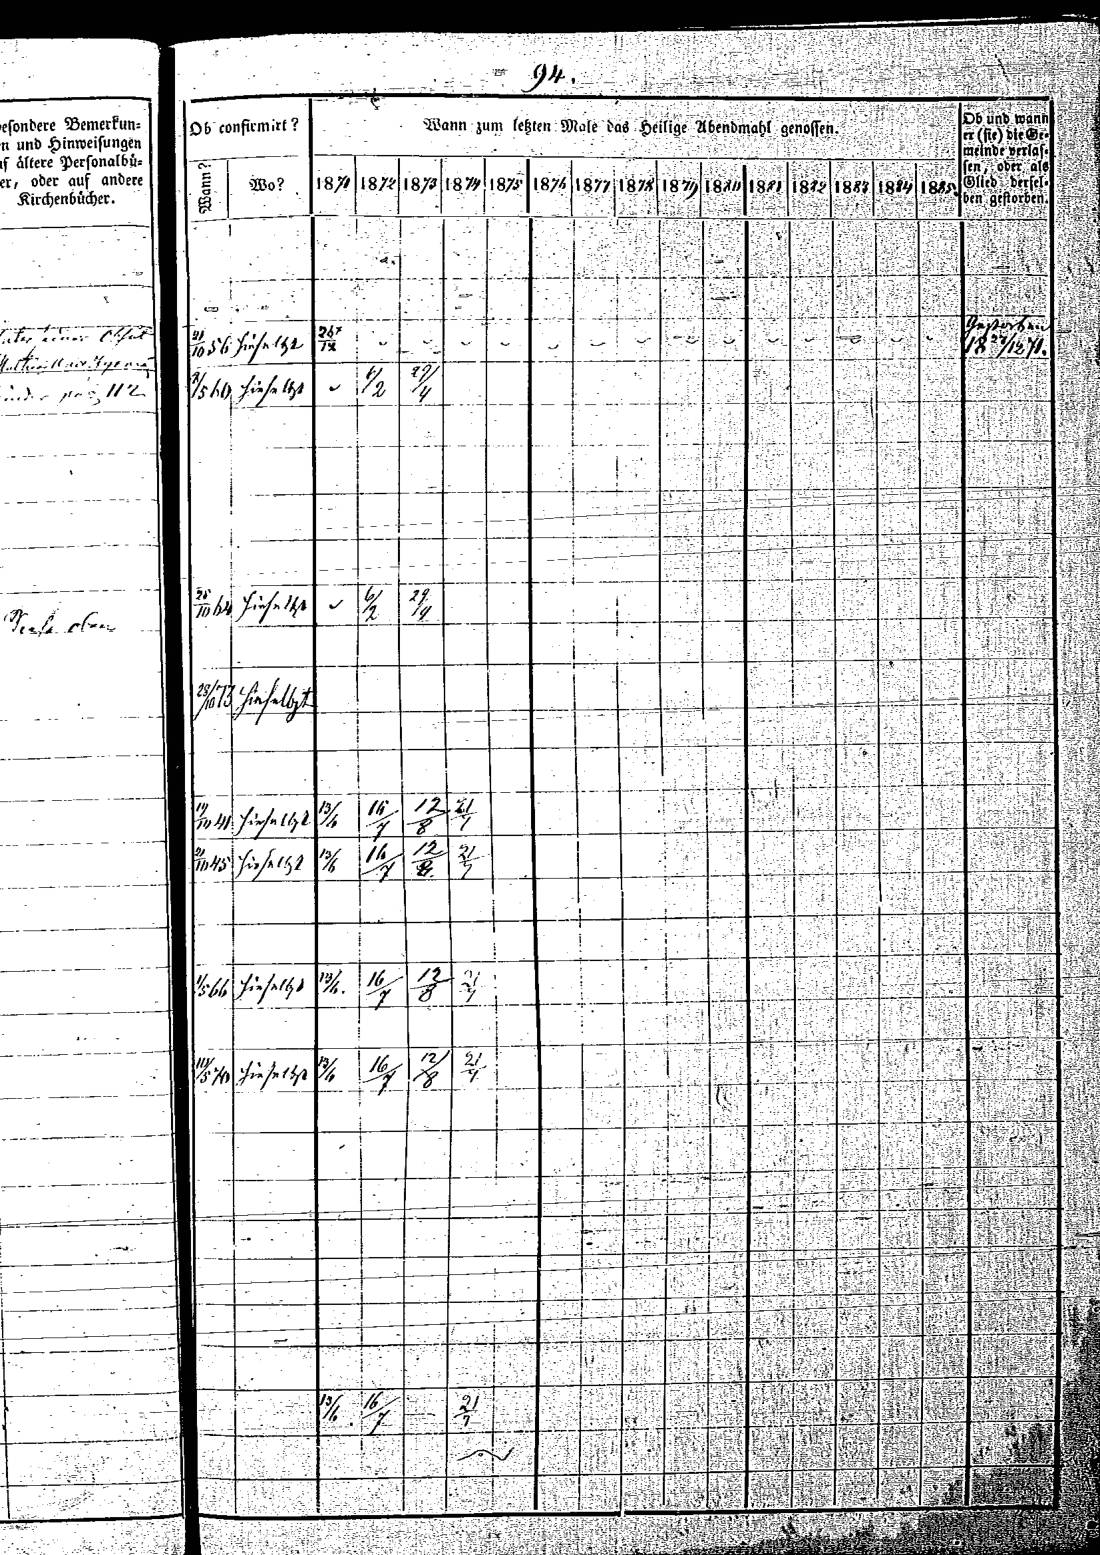 94.
besondere Bemerkun=
en und Hinweisungen
uf ältere Personalbü=
er, oder auf andere
Kirchenbücher.
Ob confirmirt?
Wann?
Wo?
Wann zum letzten Male das Heilige Abendmahl genossen.
1871 1872 1873 1874 1875 1876 1877 1878 1879 1880 1881 1882 1883 1884 1885
Ob und wann
er (sie) die Ge=
meinde verlas=
sen, oder als
Glied dersel=
ben gestorben.
21/10 56 hieselbst
Gestorben
2/5 60 hieselbst 6/2 29/4
pag 112
25/10 64 hieselbst 6/2 29/4
Siehe oben
28/10 73 hieselbst
19/10 41 hieselbst 13/6 16/7 12/8 21/7
21/10 45 hieselbst 13/6 16/7 12/8 21/7
1/5 66 hieselbst 13/6. 16/7 12/8 21/7
10/5 70 hieselbst 13/6 16/7 12/8 21/7
13/6 16/7 — 21/7